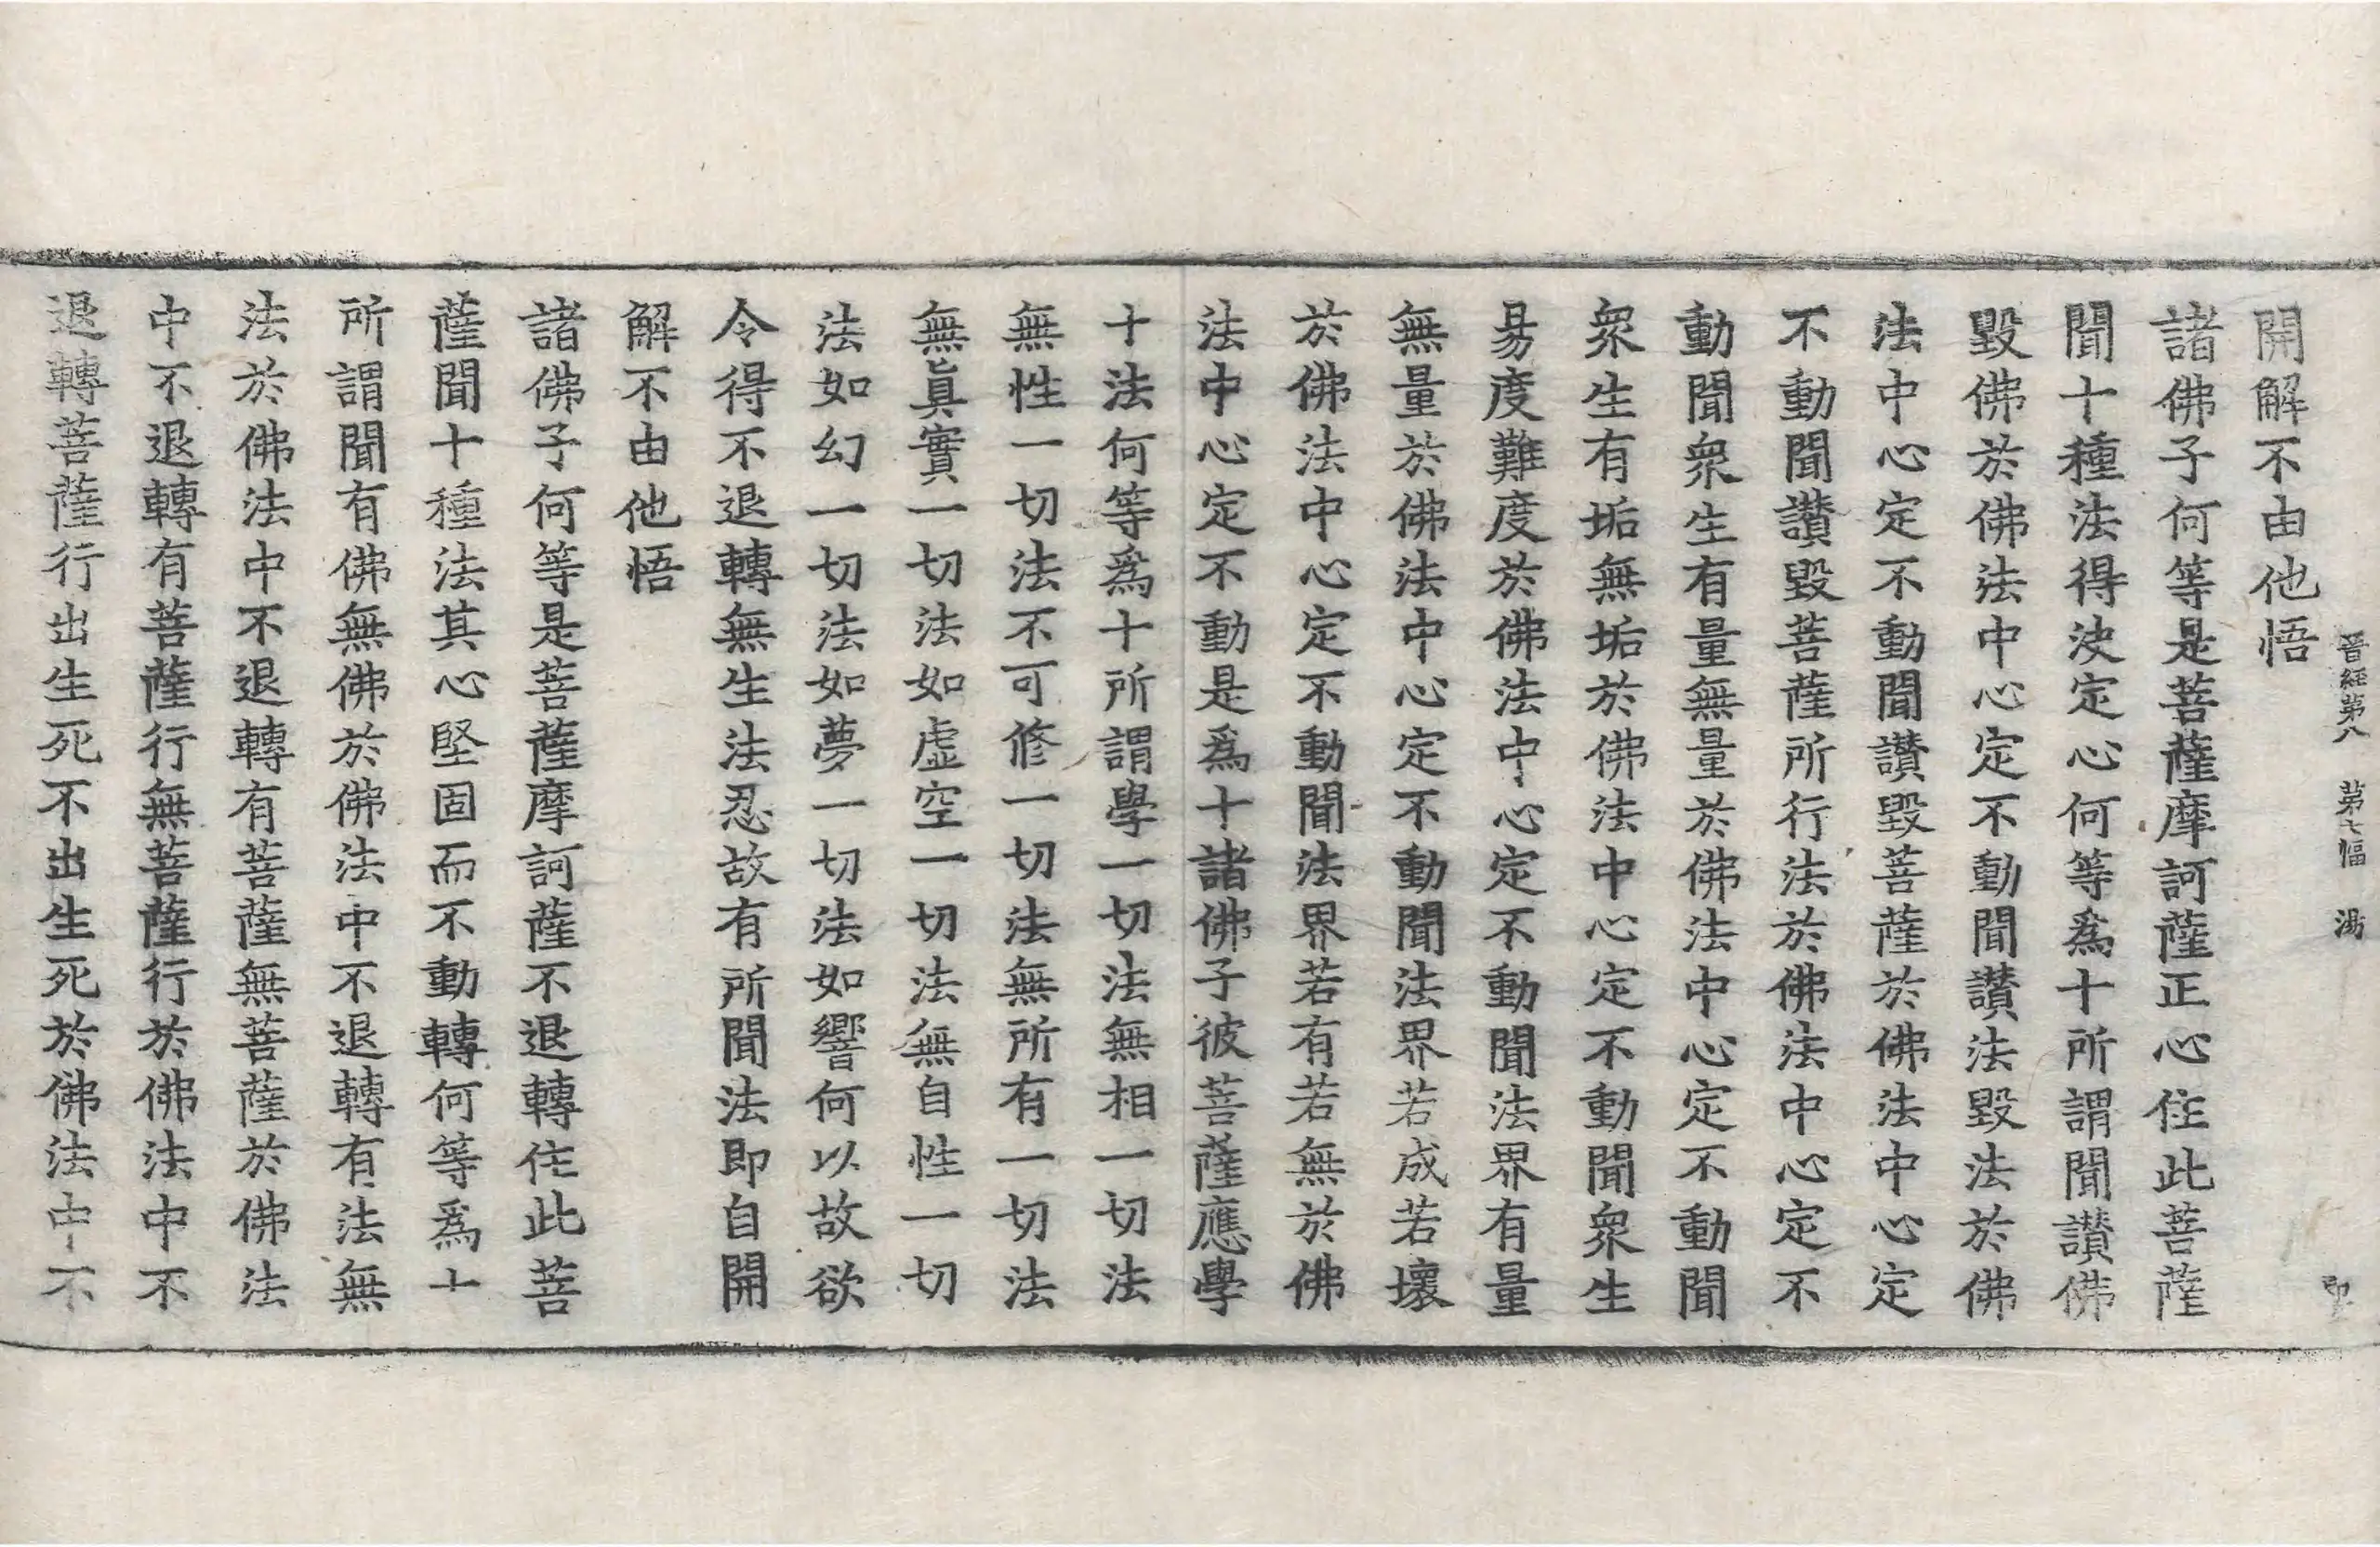 晉經第八 第七幅 湯
開解不由他悟
諸佛子何等是菩薩摩訶薩正心住此菩薩
聞十種法得決定心何等爲十所謂聞讃佛
毀佛於佛法中心定不動聞讃法毀法於佛
法中心定不動聞讃毀菩薩於佛法中心定
不動聞讃毀菩薩所行法於佛法中心定不
動聞衆生有量無量於佛法中心定不動聞
衆生有垢無垢於佛法中心定不動聞衆生
易度難度於佛法中心定不動聞法界有量
無量於佛法中心定不動聞法界若成若壞
於佛法中心定不動聞法界若有若無於佛
法中心定不動是爲十諸佛子彼菩薩應學
十法何等爲十所謂學一切法無相一切法
無性一切法不可修一切法無所有一切法
無眞實一切法如虛空一切法無自性一切
法如幻一切法如夢一切法如響何以故欲
令得不退轉無生法忍故有所聞法即自開
解不由他悟
諸佛子何等是菩薩摩訶薩不退轉住此菩
薩聞十種法其心堅固而不動轉何等爲十
所謂聞有佛無佛於佛法中不退轉有法無
法於佛法中不退轉有菩薩無菩薩於佛法
中不退轉有菩薩行無菩薩行於佛法中不
退轉菩薩行出生死不出生死於佛法中不